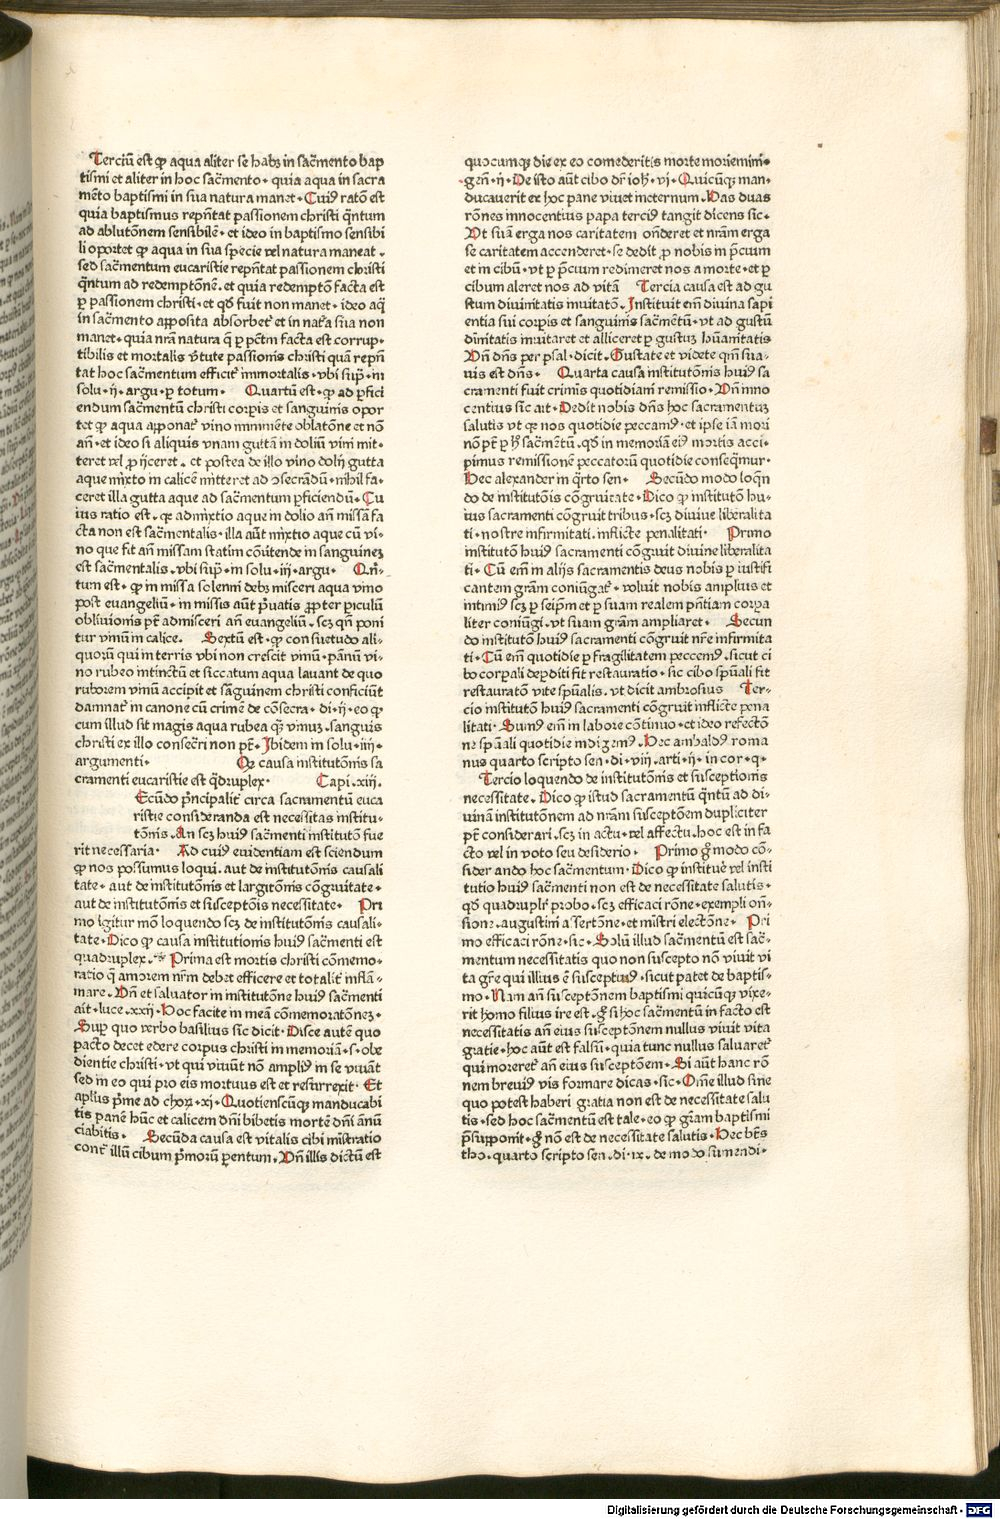 Terciū est ꝙ aqua aliter se habꝫ in sac̄mento bap
tismi et aliter in hoc sac̄mento · quia aqua in sacra
mēto baptismi in sua natura manet · Cuiꝰ ratō est
quia baptismus rep̄ntat passionem christi q̄ntum
ad ablutōnem sensibilē · et ideo in baptismo sensibi
li oportet ꝙ aqua in sua specie vel natura maneat .
sed sac̄mentum eucaristie rep̄ntat passionem christi
q̄ntum ad redemptōnē . et quia redemptō facta est
ꝑ passionem christi · et qď fuit non manet · ideo aq̄
in sac̄mento apposita absorbet᷑ et in nat᷑a sua non
manet · quia nrā natura q̄ ꝑ pctm̄ facta est corrup·
tibilis et mortalis v̄tute passionis christi quā rep̄n
tat hoc sac̄mentum efficit᷑ immortalis · vbi sup᷑ · in
solu · ij · argu · ꝑ totum · Quartū est · ꝙ ad ꝑfici
endum sac̄mentū christi corꝑis et sanguinis opor
tet ꝙ aqua apponat᷑ vino imminēte oblatōne et nō
añ · et ideo si aliquis vnam guttā in doliū vini mit·
teret vel ꝓijceret . et postea de illo vino dolij gutta
aque mixto in calicē mitteret ad ɔsecrādū · nihil fa·
ceret illa gutta aque ad sac̄mentum ꝑficiendū · Cu
ius ratio est · ꝙ admixtio aque in dolio añ missā fa
cta non est sac̄mentalis · illa aūt mixtio aque cū vi·
no que fit añ missam statim cōūtende in sanguineꝫ
est sac̄mentalis . vbi sup᷑ · in solu · iij · argu · Qn̄·
tum est · ꝙ in missa solenni debꝫ misceri aqua vino
post euangeliū · in missis aūt p̄uatis ꝓpter ꝑiculū
obliuionis pt̄ admisceri añ euangeliū . scꝫ qñ poni
tur vinū in calice. Sextū est · ꝙ consuetudo ali·
quorū qui in terris vbi non crescit vinū · pānū vi·
no rubeo intinctū et siccatum aqua lauant de quo
ruborem vinū accipit et sāguinem christi conficiūt
damnat᷑ in canone cū crimē de cōsecra · di · ij · eo ꝙ
cum illud sit magis aqua rubea q̄ vinuꝫ . sanguis
christi ex illo consec̄ri non pt̄ · Ibidem in solu · iiij ·
argumenti · Qꝫ causa institutōnis sa
cramenti eucaristie est q̄druplex · Capi . xiii .
Ecūdo p̄ncipalit᷑ circa sacramentū euca
ristie consideranda est necessitas institu·
tōnis . An scꝫ huiꝰ sac̄menti institutō fue
rit necessaria · Ad cuiꝰ euidentiam est sciendum
ꝙ nos possumus loqui . aut de institutōnis causali
tate · aut de institutōnis et largitōnis cōgruitate ·
aut de institutōnis et susceptōis necessitate · Pri
mo igitur mō loquendo scꝫ de institutōnis causali·
tate · Dico ꝙ causa institutionis huiꝰ sac̄menti est
quadruplex . Prima est mortis christi cōmemo·
ratio q̄ amorem nrm̄ debet efficere et totalit᷑ inflā·
mare . Vn̄ et saluator in institutōne huiꝰ sac̄menti
ait · luce . xxij · Hoc facite in meā cōmemoratōneꝫ ·
Sup᷑ quo verbo basilius sic dicit · Disce autē quo
pacto decet edere corpus christi in memoriā · s · obe
dientie christi · vt qui viuūt nō ampliꝰ in se viuāt
sed in eo qui pro eis mortuus est et resurrexit · Et
aplūs p̄me ad choꝝ · xi · Quotienscūqꝫ manducabi
tis panē hūc et calicem dn̄i bibetis mortē dn̄i ānū
ciabitis · Secūda causa est vitalis cibi mīstratio
cont᷑ illū cibum p̄morū ꝑentum . Vn̄ illis dictū est
quocumqꝫ die ex eo comederitis morte moriemini ·
gen̄ · ij · De isto aūt cibo dr̄ ioh̄ · vj · Quicūqꝫ man·
ducauerit ex hoc pane viuet ineternum . Has duas
rōnes innocentius papa terciꝰ tangit dicens sic ·
Vt suā erga nos caritatem onderet et nrām erga
se caritatem accenderet · se dedit ꝓ nobis in p̄cium
et in cibū · vt ꝑ p̄cium redimeret nos a morte · et ꝑ
cibum aleret nos ad vitā Tercia causa est ad gu
stum diuinitatis inuitatō . Instituit em̄ diuina sapi
entia sui corꝑis et sanguinis sac̄mētū · vt ad gustū
diuinitatis inuitaret et alliceret ꝑ gustuꝫ hūanitatis
Vn̄ dn̄s per psal · dicit . Gustate et videte qm̄ sua·
uis est dn̄s · Quarta causa institutōnis huiꝰ sa
cramenti fuit criminis quotidiani remissio · Vn̄ inno
centius sic ait · Dedit nobis dn̄s hoc sacramentuꝫ
salutis vt qꝛ nos quotidie peccamꝰ · et ipse iā mori
nō pt̄ ꝑ h̄ sac̄mētū . qď in memoriā eiꝰ mortis acci·
pimus remissionē peccatorū quotidie conseq̄mur ·
Hec alexander in q̄rto sen · Secūdo modo loq̄n
do de institutōis cōgruitate · Dico ꝙ institutō hu·
ius sacramenti cōgruit tribus · scꝫ diuine liberalita
ti · nostre infirmitati . inflicte penalitati · Primo
institutō huiꝰ sacramenti cōgruit diuine liberalita
ti · Cū em̄ in alijs sacramentis deus nobis ꝑ iustifi
cantem grām coniūgat᷑ · voluit nobis amplius et
intimiꝰ scꝫ ꝑ seipm̄ et ꝑ suam realem pn̄tiam corꝑa
liter coniūgi . vt suam grām ampliaret · Secun
do institutō huiꝰ sacramenti cōgruit nr̄e infirmita
ti · Cū em̄ quotidie ꝑ fragilitatem peccemꝰ . sicut ci
bo corꝑali deꝑditi fit restauratio · sic cibo spūali fit
restauratō vite spūalis . vt dicit ambrosius Ter·
cio institutō huiꝰ sacramenti cōgruit inflicte pena
litati · Sumꝰ em̄ in labore cōtinuo · et ideo refectō
ne spūali quotidie indigemꝰ · Hec anibaldꝰ roma
nus quarto scripto sen · di · viij . arti · ij · in cor · q ·
Tercio loquendo de institutōnis et susceptionis
necessitate . Dico ꝙ istud sacramentū q̄ntū ad di·
uinā institutōnem ad nrām susceptōem dupliciter
pt̄ considerari . scꝫ in actu · vel affectu . hoc est in fa
cto vel in voto seu desiderio · Primo g̊ modo cō·
siderando hoc sac̄mentum · Dico ꝙ instituē vel insti
tutio huiꝰ sac̄menti non est de necessitate salutis ·
qď quadruplr̄ probo · scꝫ efficaci rōne · exempli on̄·
sione . augustini assertōne · et mīstri electōne · Pri
mo efficaci rōne · sic · Solū illud sac̄mentū est sac̄·
mentum necessitatis quo non suscepto nō viuit vi
ta gr̄e qui illius ē susceptiuꝰ · sicut patet de baptis·
mo · Nam añ susceptōnem baptismi quicūqꝫ vixe·
rit homo filius ire est · g̊ si hoc sac̄mentū in facto est
necessitatis añ eius susceptōnem nullus viuit vita
gratie · hoc aūt est falsū · quia tunc nullus saluaret᷑
qui moreret᷑ añ eius susceptōem · Si aūt hanc rō
nem breuiꝰ vis formare dicas · sic · Om̄e illud sine
quo potest haberi gratia non est de necessitate salu
tis · sed hoc sac̄mentū est tale · eo ꝙ grām baptismi
p̄supponit · g̊ nō est de necessitate salutis · Hec bt̄s
tho · quarto scripto sen . di · ix . de modo sumendi ·
Digitalisierung gefördert durch die Deutsche Forschungsgemeinschaft · DFG